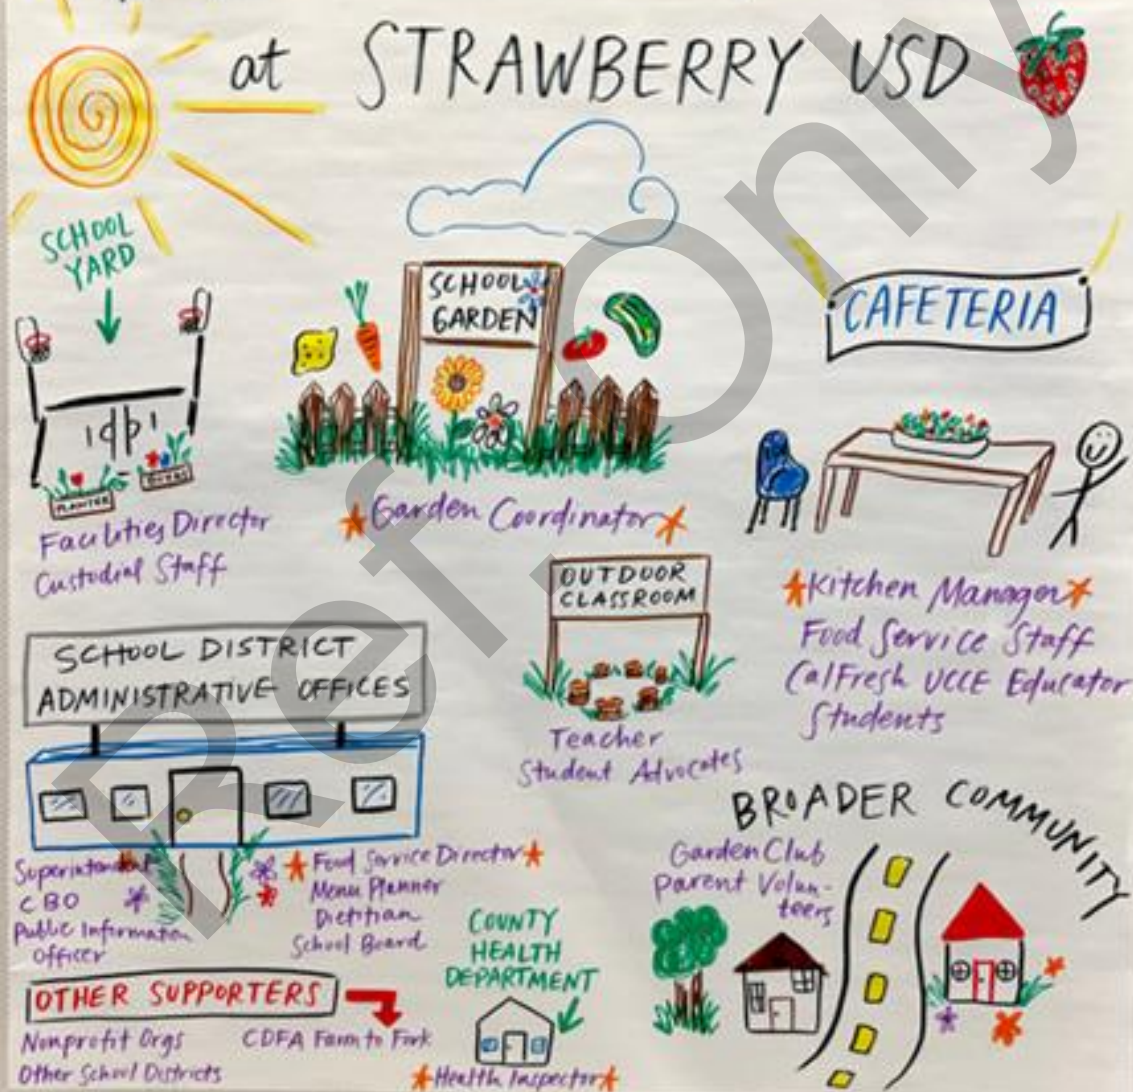 at STRAWBERRY USD
SCHOOL
YARD
PLANTER
Facilities Director
Custodial Staff
SCHOOL
GARDEN
*Garden Coordinator*
CAFETERIA
*Kitchen Manager*
Food Service Staff
CalFresh UCCE Educator
Students
OUTDOOR
CLASSROOM
Teacher
Student Advocates
SCHOOL DISTRICT
ADMINISTRATIVE OFFICES
Superintendent
CBO
Public Information
Officer
*Food Service Director*
Menu Planner
Dietitian
School Board
BROADER COMMUNITY
Garden Club
Parent Volun-
teers
COUNTY
HEALTH
DEPARTMENT
*Health Inspector*
OTHER SUPPORTERS
Nonprofit Orgs
Other School Districts
CDFA Farm to Fork
Ref. Only